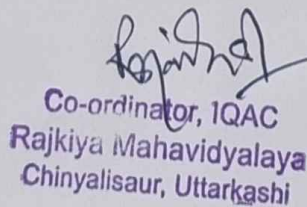 Co-ordinator, 1QAC
Rajkiya Mahavidyalaya
Chinyalisaur, Uttarkashi